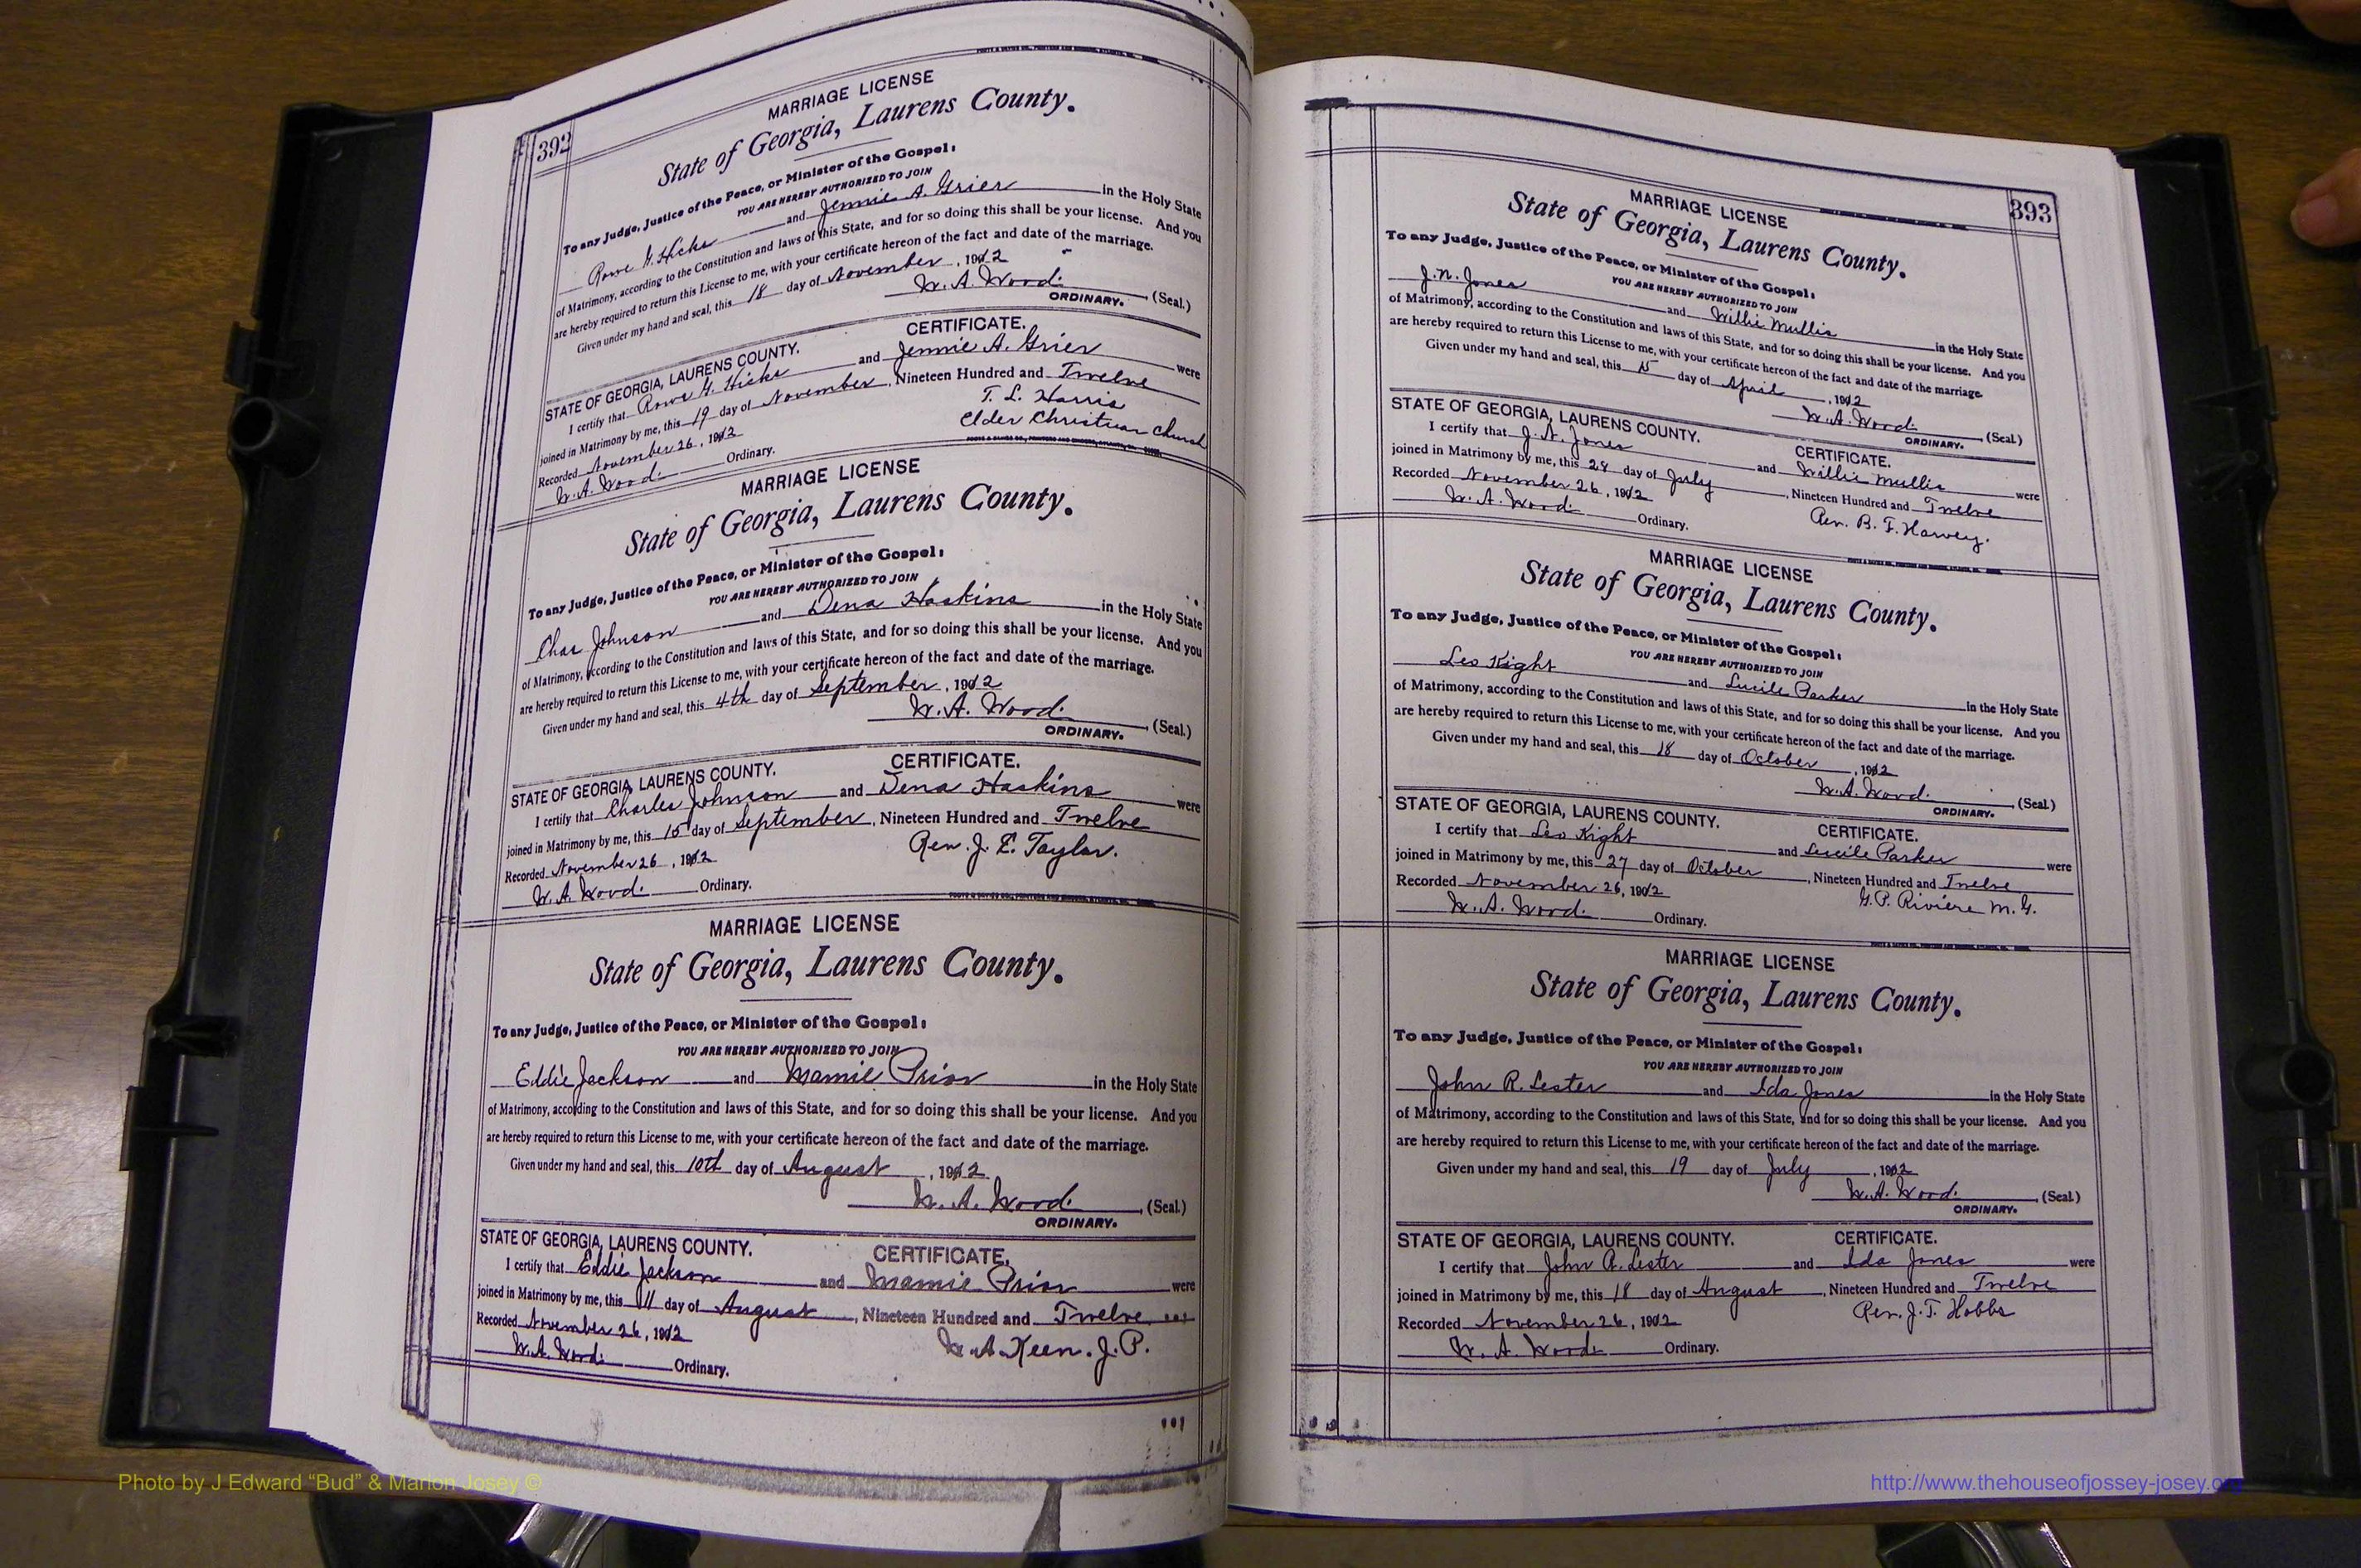 392
MARRIAGE LICENSE
State of Georgia, Laurens County.
To any Judge, Justice of the Peace, or Minister of the Gospel:
YOU ARE HEREBY AUTHORIZED TO JOIN
Rowe H. Hicks and Jennie A. Grier in the Holy State
of Matrimony, according to the Constitution and laws of this State, and for so doing this shall be your license. And you
are hereby required to return this License to me, with your certificate hereon of the fact and date of the marriage.
Given under my hand and seal, this 18 day of November, 1912
W. A. Wood (Seal.)
ORDINARY.
CERTIFICATE.
STATE OF GEORGIA, LAURENS COUNTY.
I certify that Rowe H. Hicks and Jennie A. Grier were
joined in Matrimony by me, this 19 day of November, Nineteen Hundred and Twelve
Recorded November 26, 1912 T. L. Harris
W. A. Wood Ordinary. Elder Christian Church
MARRIAGE LICENSE
State of Georgia, Laurens County.
To any Judge, Justice of the Peace, or Minister of the Gospel:
YOU ARE HEREBY AUTHORIZED TO JOIN
Chas Johnson and Dena Haskins in the Holy State
of Matrimony, according to the Constitution and laws of this State, and for so doing this shall be your license. And you
are hereby required to return this License to me, with your certificate hereon of the fact and date of the marriage.
Given under my hand and seal, this 4th day of September, 1912
W. A. Wood (Seal.)
ORDINARY.
CERTIFICATE.
STATE OF GEORGIA, LAURENS COUNTY.
I certify that Charles Johnson and Dena Haskins were
joined in Matrimony by me, this 15 day of September, Nineteen Hundred and Twelve
Recorded November 26, 1912 Rev. J. E. Taylor.
W. A. Wood Ordinary.
MARRIAGE LICENSE
State of Georgia, Laurens County.
To any Judge, Justice of the Peace, or Minister of the Gospel:
YOU ARE HEREBY AUTHORIZED TO JOIN
Eddie Jackson and Mamie Prior in the Holy State
of Matrimony, according to the Constitution and laws of this State, and for so doing this shall be your license. And you
are hereby required to return this License to me, with your certificate hereon of the fact and date of the marriage.
Given under my hand and seal, this 10th day of August, 1912
W. A. Wood, (Seal.)
ORDINARY.
STATE OF GEORGIA, LAURENS COUNTY. CERTIFICATE.
I certify that Eddie Jackson and Mamie Prior were
joined in Matrimony by me, this 11 day of August, Nineteen Hundred and Twelve
Recorded November 26, 1912 W. A. Keen. J. P.
W. A. Wood Ordinary.
393
MARRIAGE LICENSE
State of Georgia, Laurens County.
To any Judge, Justice of the Peace, or Minister of the Gospel:
YOU ARE HEREBY AUTHORIZED TO JOIN
J. N. Jones and Willie Mullis in the Holy State
of Matrimony, according to the Constitution and laws of this State, and for so doing this shall be your license. And you
are hereby required to return this License to me, with your certificate hereon of the fact and date of the marriage.
Given under my hand and seal, this 15 day of April, 1912
W. A. Wood (Seal.)
ORDINARY.
STATE OF GEORGIA, LAURENS COUNTY. CERTIFICATE.
I certify that J. N. Jones and Willie Mullis were
joined in Matrimony by me, this 28 day of July, Nineteen Hundred and Twelve
Recorded November 26, 1912 Rev. B. F. Harvey.
W. A. Wood Ordinary.
MARRIAGE LICENSE
State of Georgia, Laurens County.
To any Judge, Justice of the Peace, or Minister of the Gospel:
YOU ARE HEREBY AUTHORIZED TO JOIN
Leo Kight and Lucile Parker in the Holy State
of Matrimony, according to the Constitution and laws of this State, and for so doing this shall be your license. And you
are hereby required to return this License to me, with your certificate hereon of the fact and date of the marriage.
Given under my hand and seal, this 18 day of October, 1912
W. A. Wood, (Seal.)
ORDINARY.
STATE OF GEORGIA, LAURENS COUNTY. CERTIFICATE.
I certify that Leo Kight and Lucile Parker were
joined in Matrimony by me, this 27 day of October, Nineteen Hundred and Twelve
Recorded November 26, 1912 G. P. Riviere M. G.
W. A. Wood Ordinary.
MARRIAGE LICENSE
State of Georgia, Laurens County.
To any Judge, Justice of the Peace, or Minister of the Gospel:
YOU ARE HEREBY AUTHORIZED TO JOIN
John R. Lester and Ida Jones in the Holy State
of Matrimony, according to the Constitution and laws of this State, and for so doing this shall be your license. And you
are hereby required to return this License to me, with your certificate hereon of the fact and date of the marriage.
Given under my hand and seal, this 19 day of July, 1912
W. A. Wood, (Seal.)
ORDINARY.
STATE OF GEORGIA, LAURENS COUNTY. CERTIFICATE.
I certify that John R. Lester and Ida Jones were
joined in Matrimony by me, this 18 day of August, Nineteen Hundred and Twelve
Recorded November 26, 1912 Rev. J. T. Hobbs
W. A. Wood Ordinary.
Photo by J Edward “Bud” & Marion Josey ©
http://www.thehouseofjossey-josey.org